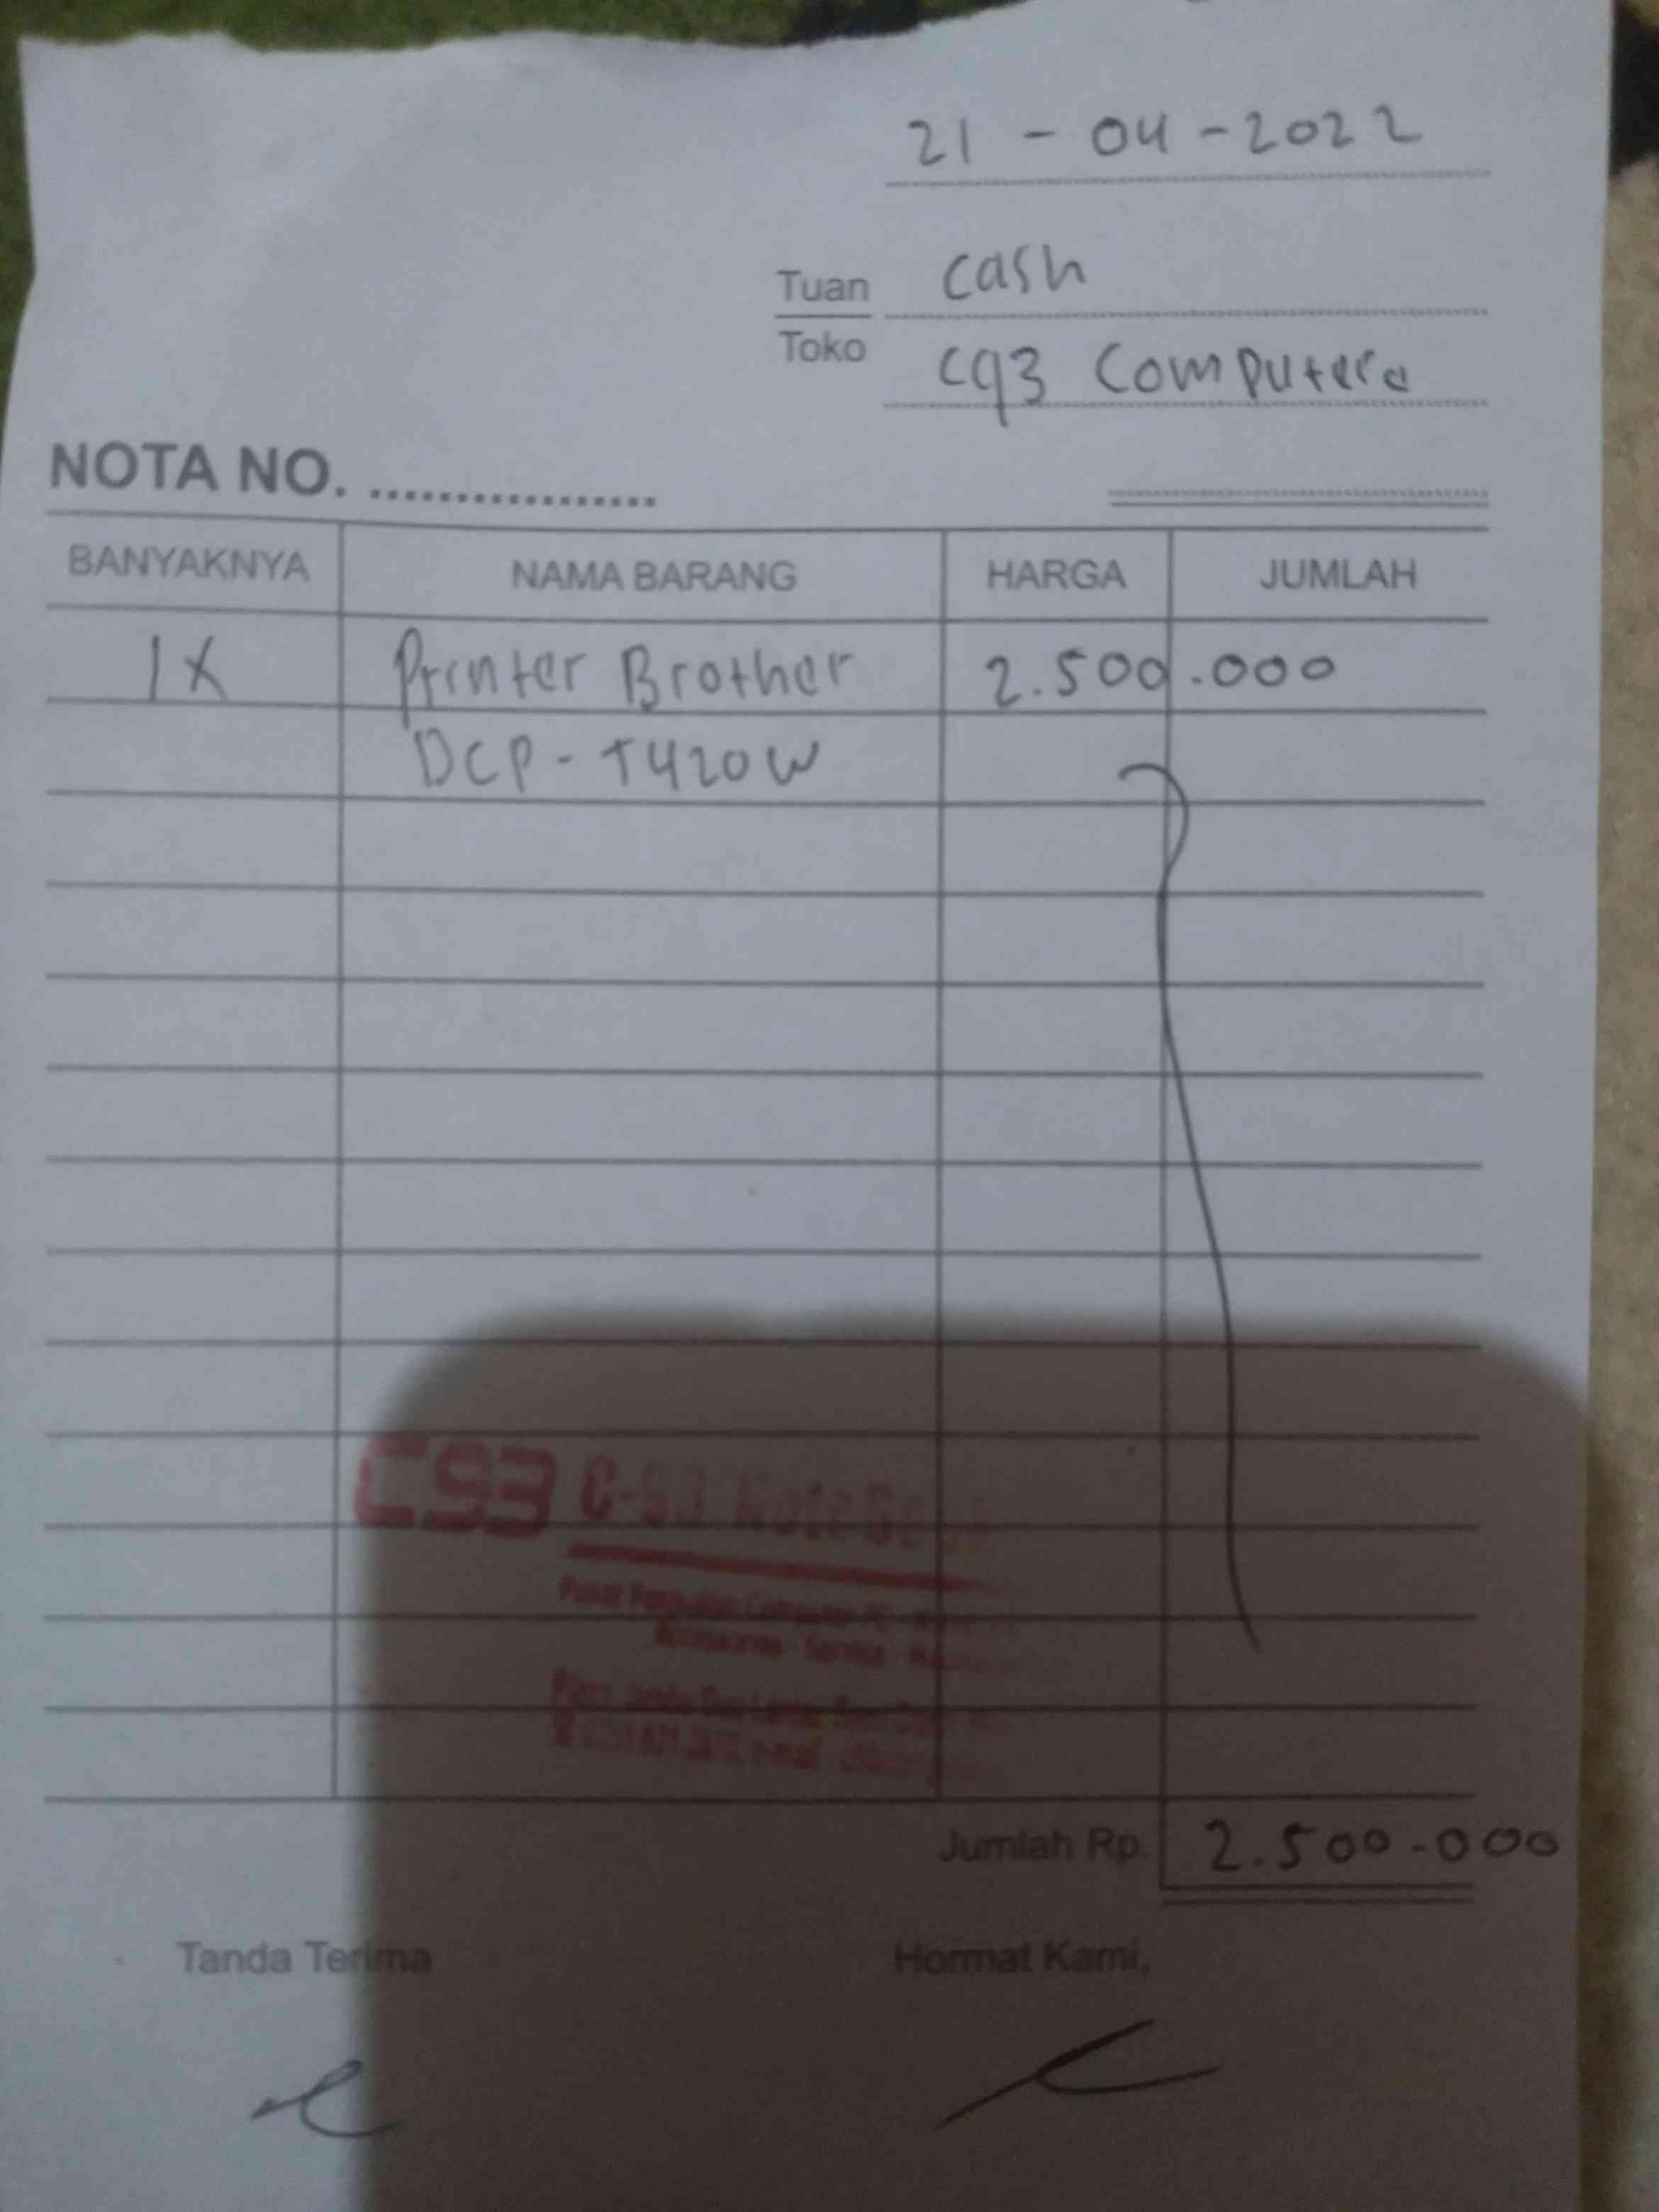 21 - 04 - 2022
Tuan cash
Toko
C93 Computere
NOTA NO. .................
BANYAKNYA NAMA BARANG HARGA JUMLAH
1X Printer Brother 2.500.000
DCP - T420W
C93 C-93 NoteBook
Accessories - Service
Jumlah Rp. 2.500.000
Tanda Terima Hormat Kami,